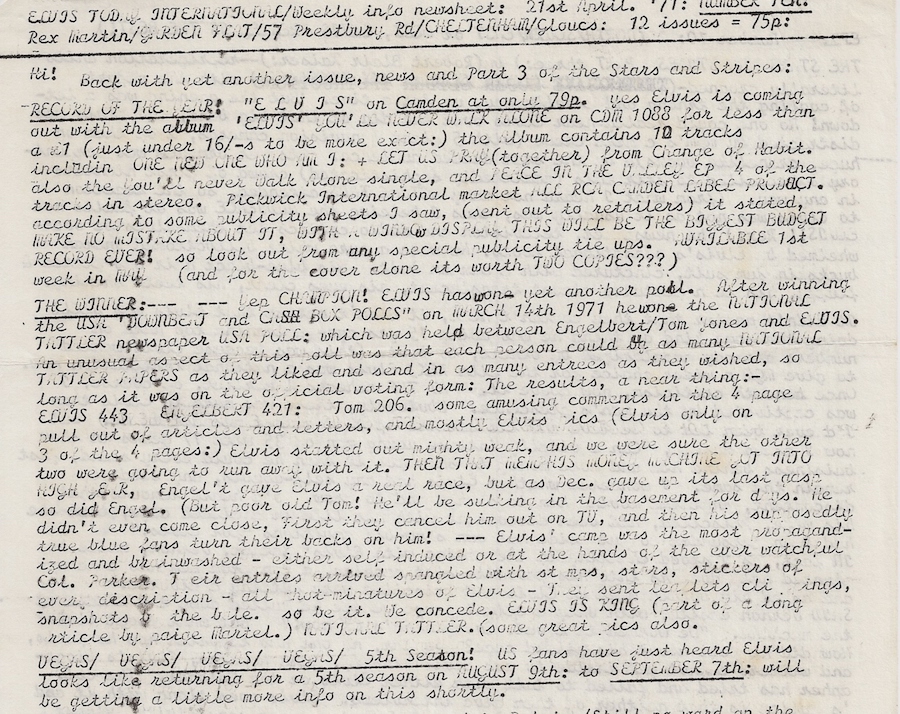 ELVIS TODAY INTERNATIONAL/Weekly info newsheet: 21st April. '71: NUMBER TEN:
Rex Martin/GARDEN FLAT/57 Prestbury Rd/CHELTENHAM/Gloucs: 12 issues = 75p:
Hi! Back with yet another issue, news and Part 3 of the Stars and Stripes:
RECORD OF THE YEAR! "E L V I S" on Camden at only 79p. yes Elvis is coming
out with the album 'ELVIS' YOU'LL NEVER WALK ALONE on CDM 1088 for less than
a £1 (just under 16/-s to be more exact:) the Album contains 10 tracks
includin ONE NEW ONE WHO AM I: + LET US PRAY(together) from Change of Habit.
also the You'll never Walk Alone single, and PEACE IN THE VALLEY EP 4 of the
tracks in stereo. Pickwick International market ALL RCA CAMDEN LABEL PRODUCT.
according to some publicity sheets I saw, (sent out to retailers) it stated,
MAKE NO MISTAKE ABOUT IT, WITH A WINDOW DISPLAY THIS WILL BE THE BIGGEST BUDGET
RECORD EVER! so look out from any special publicity tie ups. AVAILABLE 1st
week in MAY (and for the cover alone its worth TWO COPIES???)
THE WINNER:--- --- Yep CHAMPION! ELVIS haswone yet another poll. After winning
the USA "DOWNBEAT and CASH BOX POLLS" on MARCH 14th 1971 hewone the NATIONAL
TATTLER newspaper USA POLL: which was held between Engelbert/Tom Jones and ELVIS.
An unusual aspect of this poll was that each person could by as many NATIONAL
TATTLER PAPERS as they liked and send in as many entrees as they wished, so
long as it was on the official voting form: The results, a near thing:-
ELVIS 443 ENGELBERT 421: Tom 206. some amusing comments in the 4 page
pull out of articles and letters, and mostly Elvis pics (Elvis only on
3 of the 4 pages:) Elvis started out mighty weak, and we were sure the other
two were going to run away with it. THEN THAT MEMPHIS MONEY MACHINE GOT INTO
HIGH GEAR, Engel't gave Elvis a real race, but as Dec. gave up its last gasp
so did Engel. (But poor old Tom! He'll be sulking in the basement for days. He
didn't even come close, First they cancel him out on TV, and then his supposedly
true blue fans turn their backs on him! --- Elvis' camp was the most propagand-
ized and brainwashed - either self-induced or at the hands of the ever watchful
Col. Parker. Their entries arrived spangled with stamps, stars, stickers of
every description - all hot-minatures of Elvis - They sent letters clippings,
snapshots by the bale. so be it. We concede. ELVIS IS KING (part of a long
article by paige Martel.) NATIONAL TATTLER.(some great pics also.
VEGAS/ VEGAS/ VEGAS/ VEGAS/ 5th Season! US fans have just heard Elvis
looks like returning for a 5th season on AUGUST 9th: to SEPTEMBER 7th: will
be getting a little more info on this shortly.